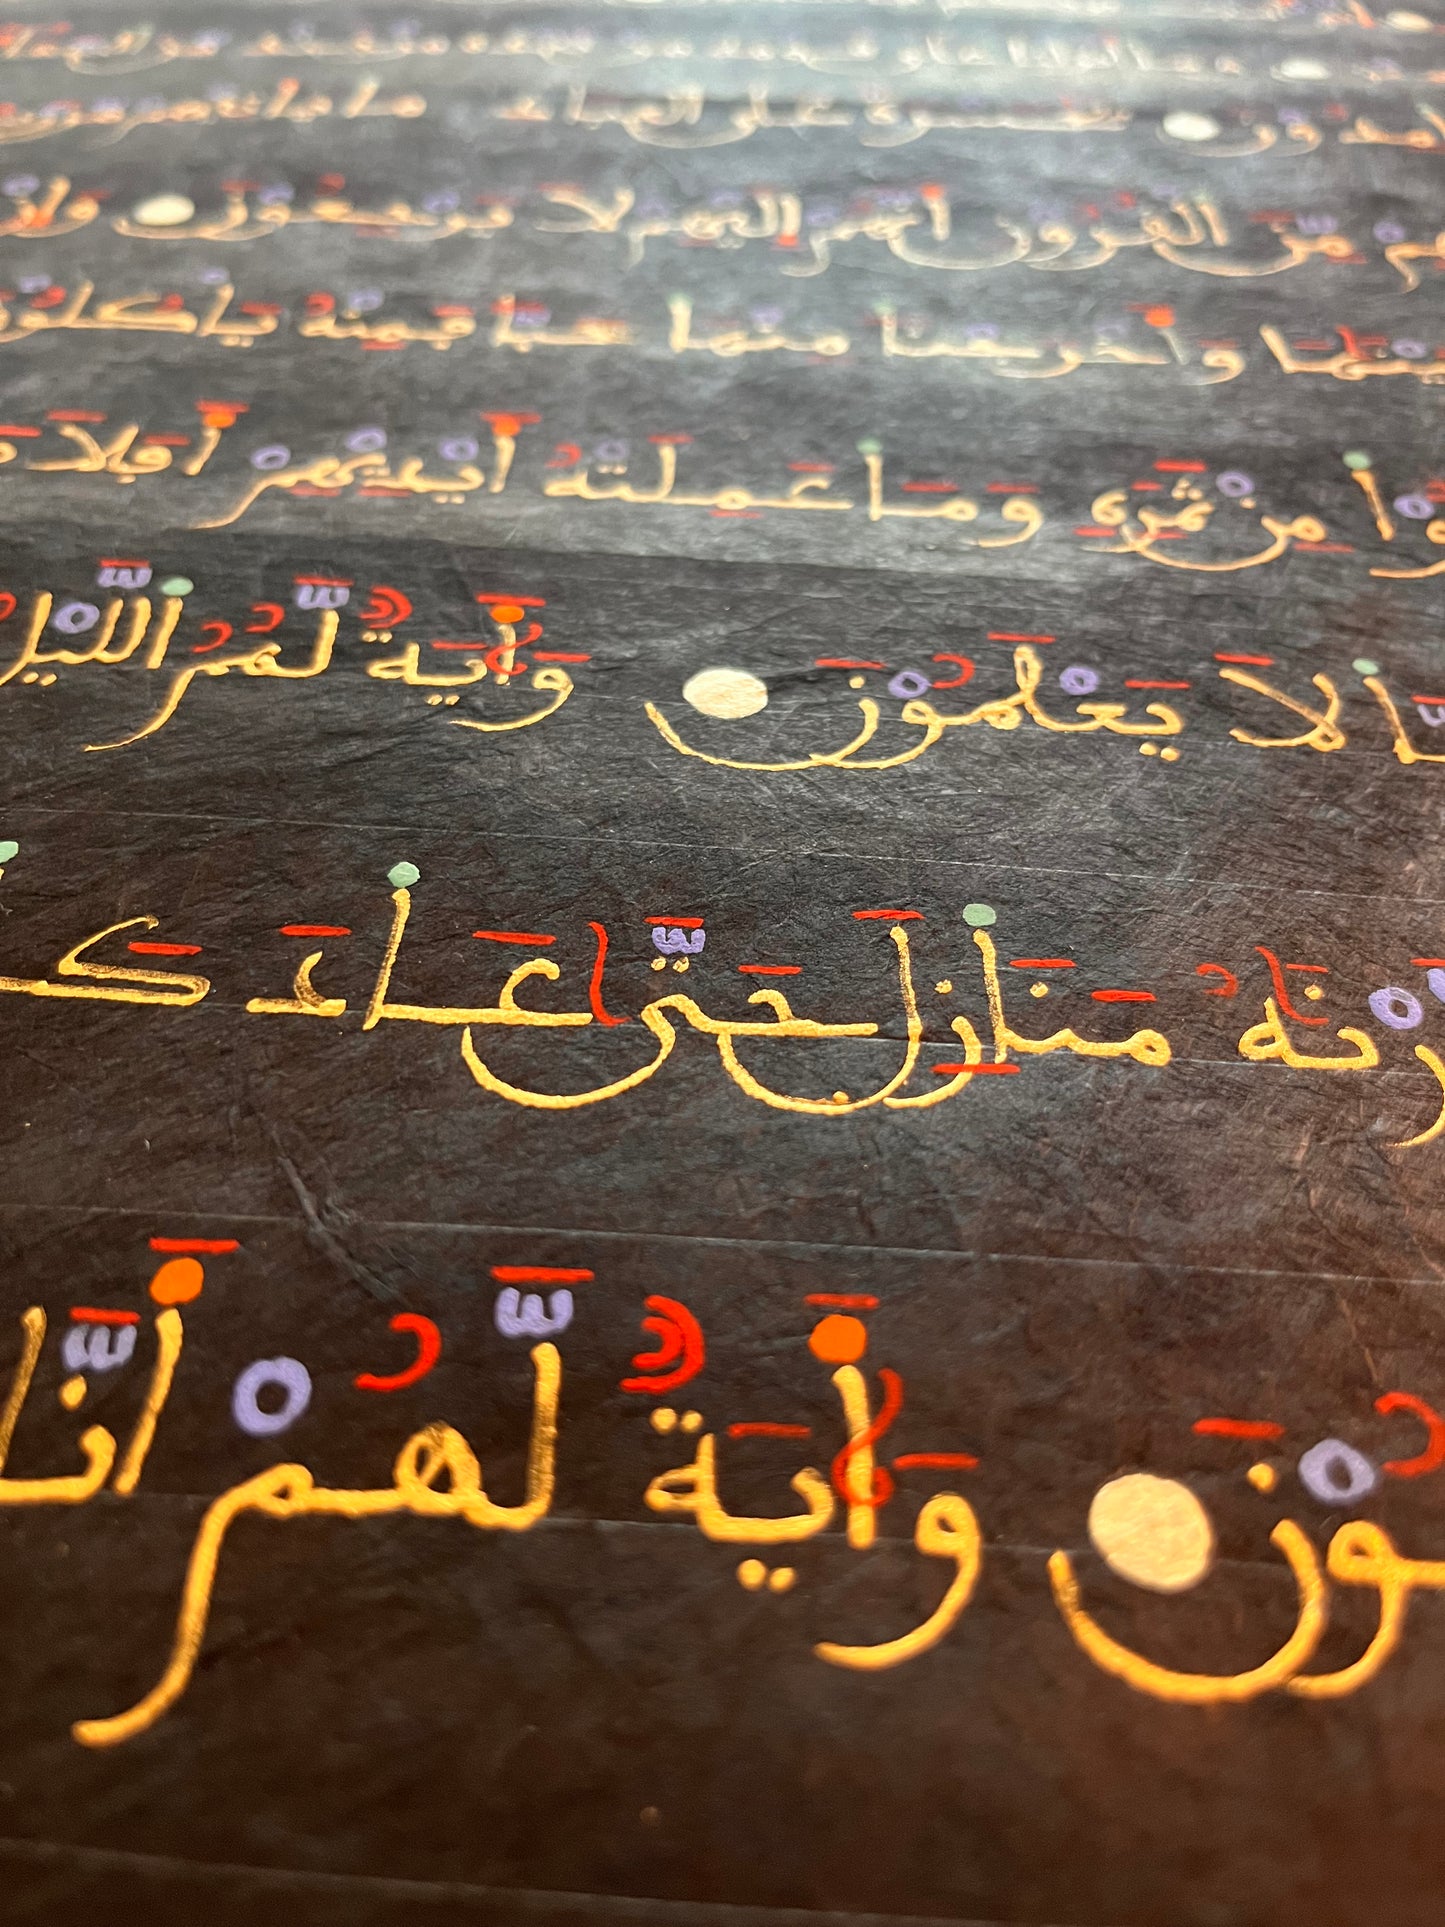 مدون يحسرة على العباد ما ياتيهم من
هم مِّنَ الْقُرُونِ أَنَّهُمْ إِلَيْهِمْ لَا يَرْجِعُونَ وَإِن
ينَٰهَا وَأَخْرَجْنَا مِنْهَا حَبًّا فَمِنْهُ يَاكُلُونَ
وا مِن ثَمَرِهِ وَمَا عَمِلَتْهُ أَيْدِيهِمْ أَفَلَا
ـمَّا لَا يَعْلَمُونَ وَءَايَةٌ لَّهُمُ الَّيْلُ
رْنَٰهُ مَنَازِلَ حَتَّىٰ عَادَ كَا
ـونَ وَءَايَةٌ لَّهُمْ أَنَّا